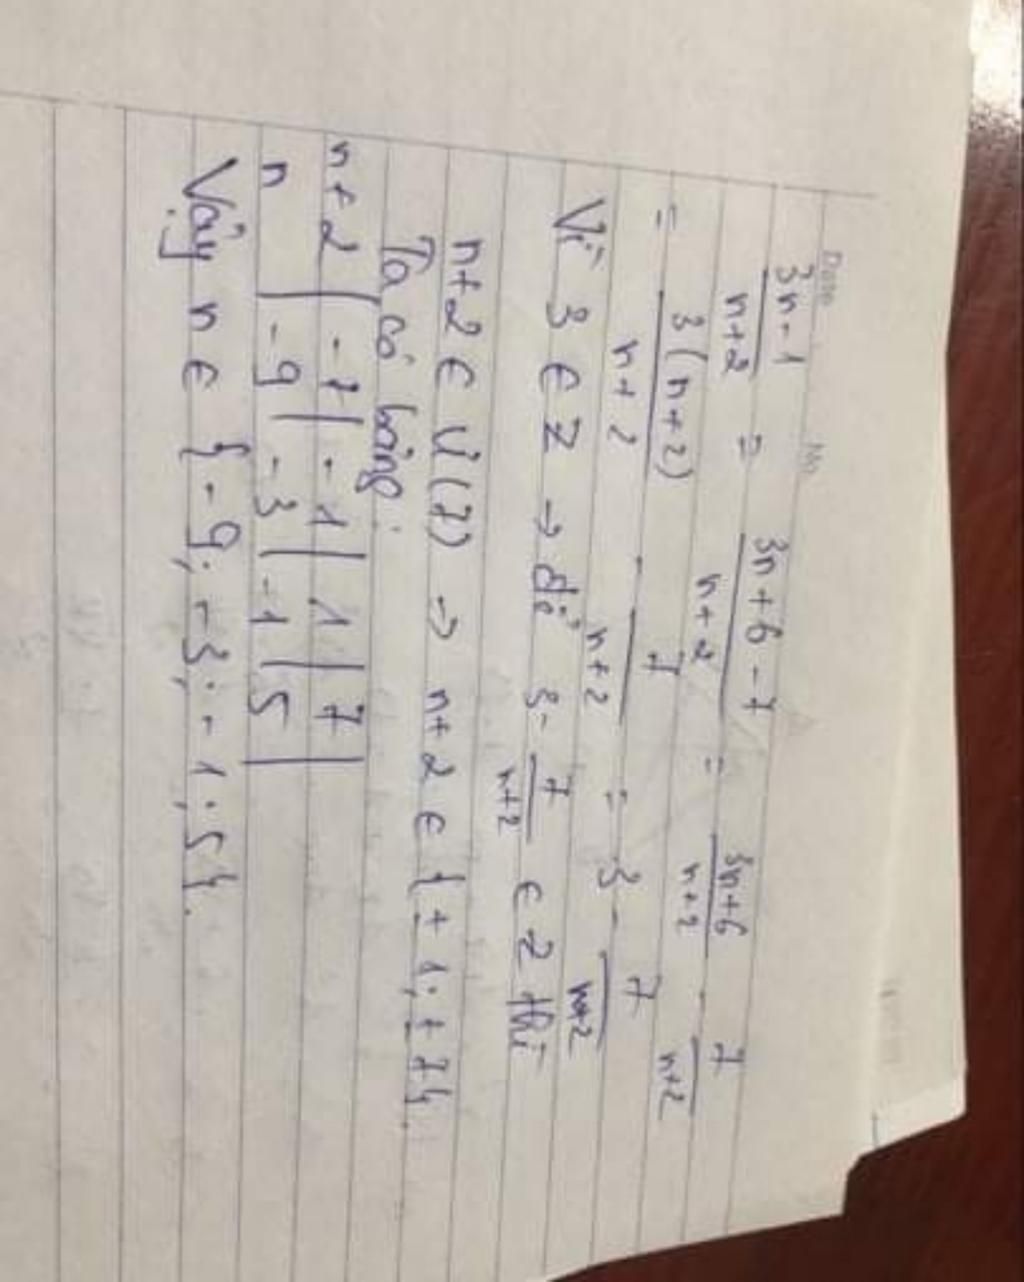 Date No
3n-1/n+2 = 3n+6-7/n+2 = 3n+6/n+2 - 7/n+2
= 3(n+2)/n+2 - 7/n+2 = 3 - 7/n+2
Vì 3 ∈ Z → để 3 - 7/n+2 ∈ Z thì
n+2 ∈ Ư(7) → n+2 ∈ {±1; ±7}.
Ta có bảng:
n+2 | -7 | -1 | 1 | 7 |
n | -9 | -3 | -1 | 5 |
Vậy n ∈ {-9; -3; -1; 5}.